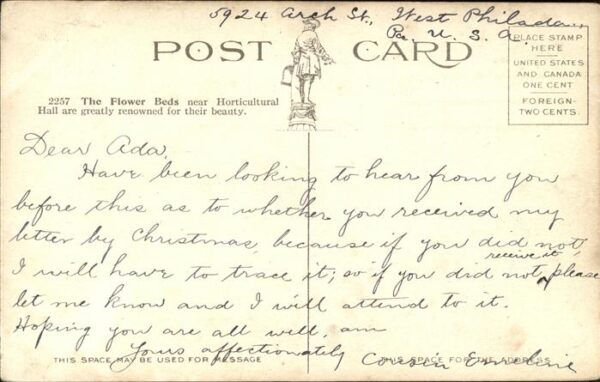 5924 Arch St., West Philada.,
Pa. U. S. A.
POST CARD
PLACE STAMP
HERE
UNITED STATES
AND CANADA
ONE CENT
FOREIGN-
TWO CENTS.
2257 The Flower Beds near Horticultural
Hall are greatly renowned for their beauty.
Dear Ada,
Have been looking to hear from you
before this as to whether you received my
letter by Christmas, because if you did not
I will have to trace it; so if you did not receive it, please
let me know and I will attend to it.
Hoping you are all well, am
Yours affectionately
Cousin Emeline
THIS SPACE MAY BE USED FOR MESSAGE
THIS SPACE FOR THE ADDRESS